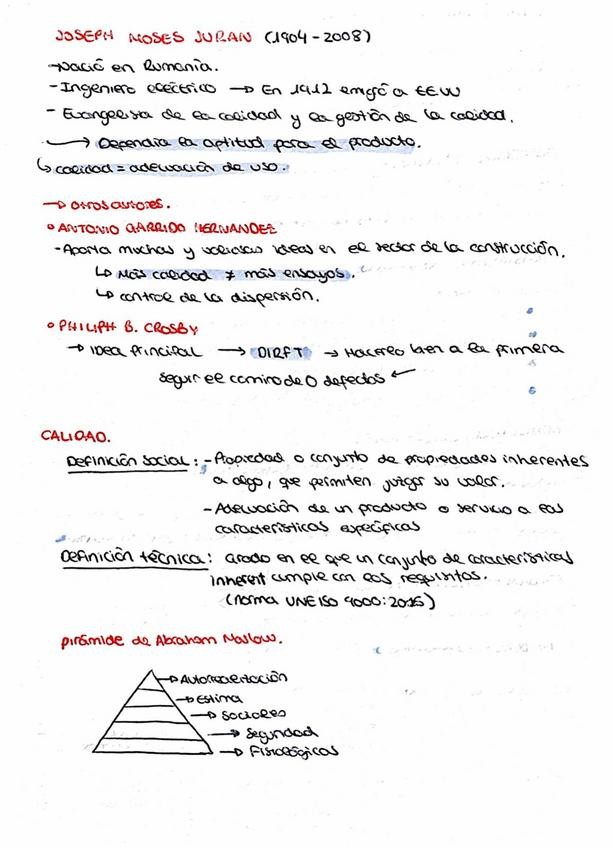 JOSEPH MOSES JURAN (1904-2008)
→ Nació en Rumanía.
- Ingeniero eléctrico → En 1912 emigró a EEUU
- Evangelista de la calidad y la gestión de la calidad.
→ Dependia la aptitud para el producto.
↳ calidad = adecuación de uso.
→ Otros autores.
• ANTONIO GARRIDO HERNANDEZ
- Aporta muchas y valiosas ideas en el sector de la construcción.
↳ Más calidad ≠ más ensayos.
↳ control de la dispersión.
• PHILIPH B. CROSBY
→ Idea principal → DIRFT → Hacerlo bien a la primera
seguir el camino de 0 defectos ←
CALIDAD.
Definición social: - Propiedad o conjunto de propiedades inherentes
a algo, que permiten juzgar su valor.
- Adecuación de un producto o servicio a las
características específicas
Definición técnica: Grado en el que un conjunto de características
inherent cumple con los requisitos.
(norma UNE ISO 9000:2015)
pirámide de Abraham Maslow.
→ Autorrealización
→ Estima
→ Sociales
→ Seguridad
→ Fisiológicas